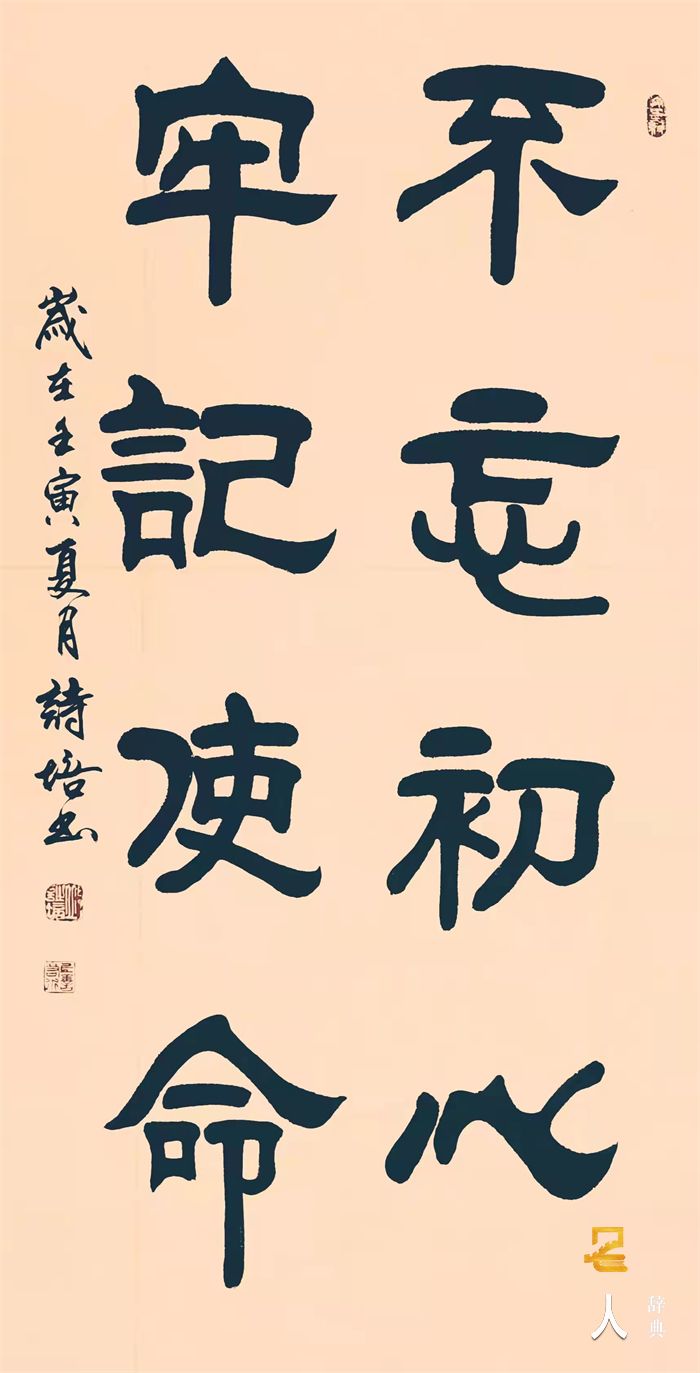 不忘初心
牢記使命
歲在壬寅夏月詩培书
名人
辞典